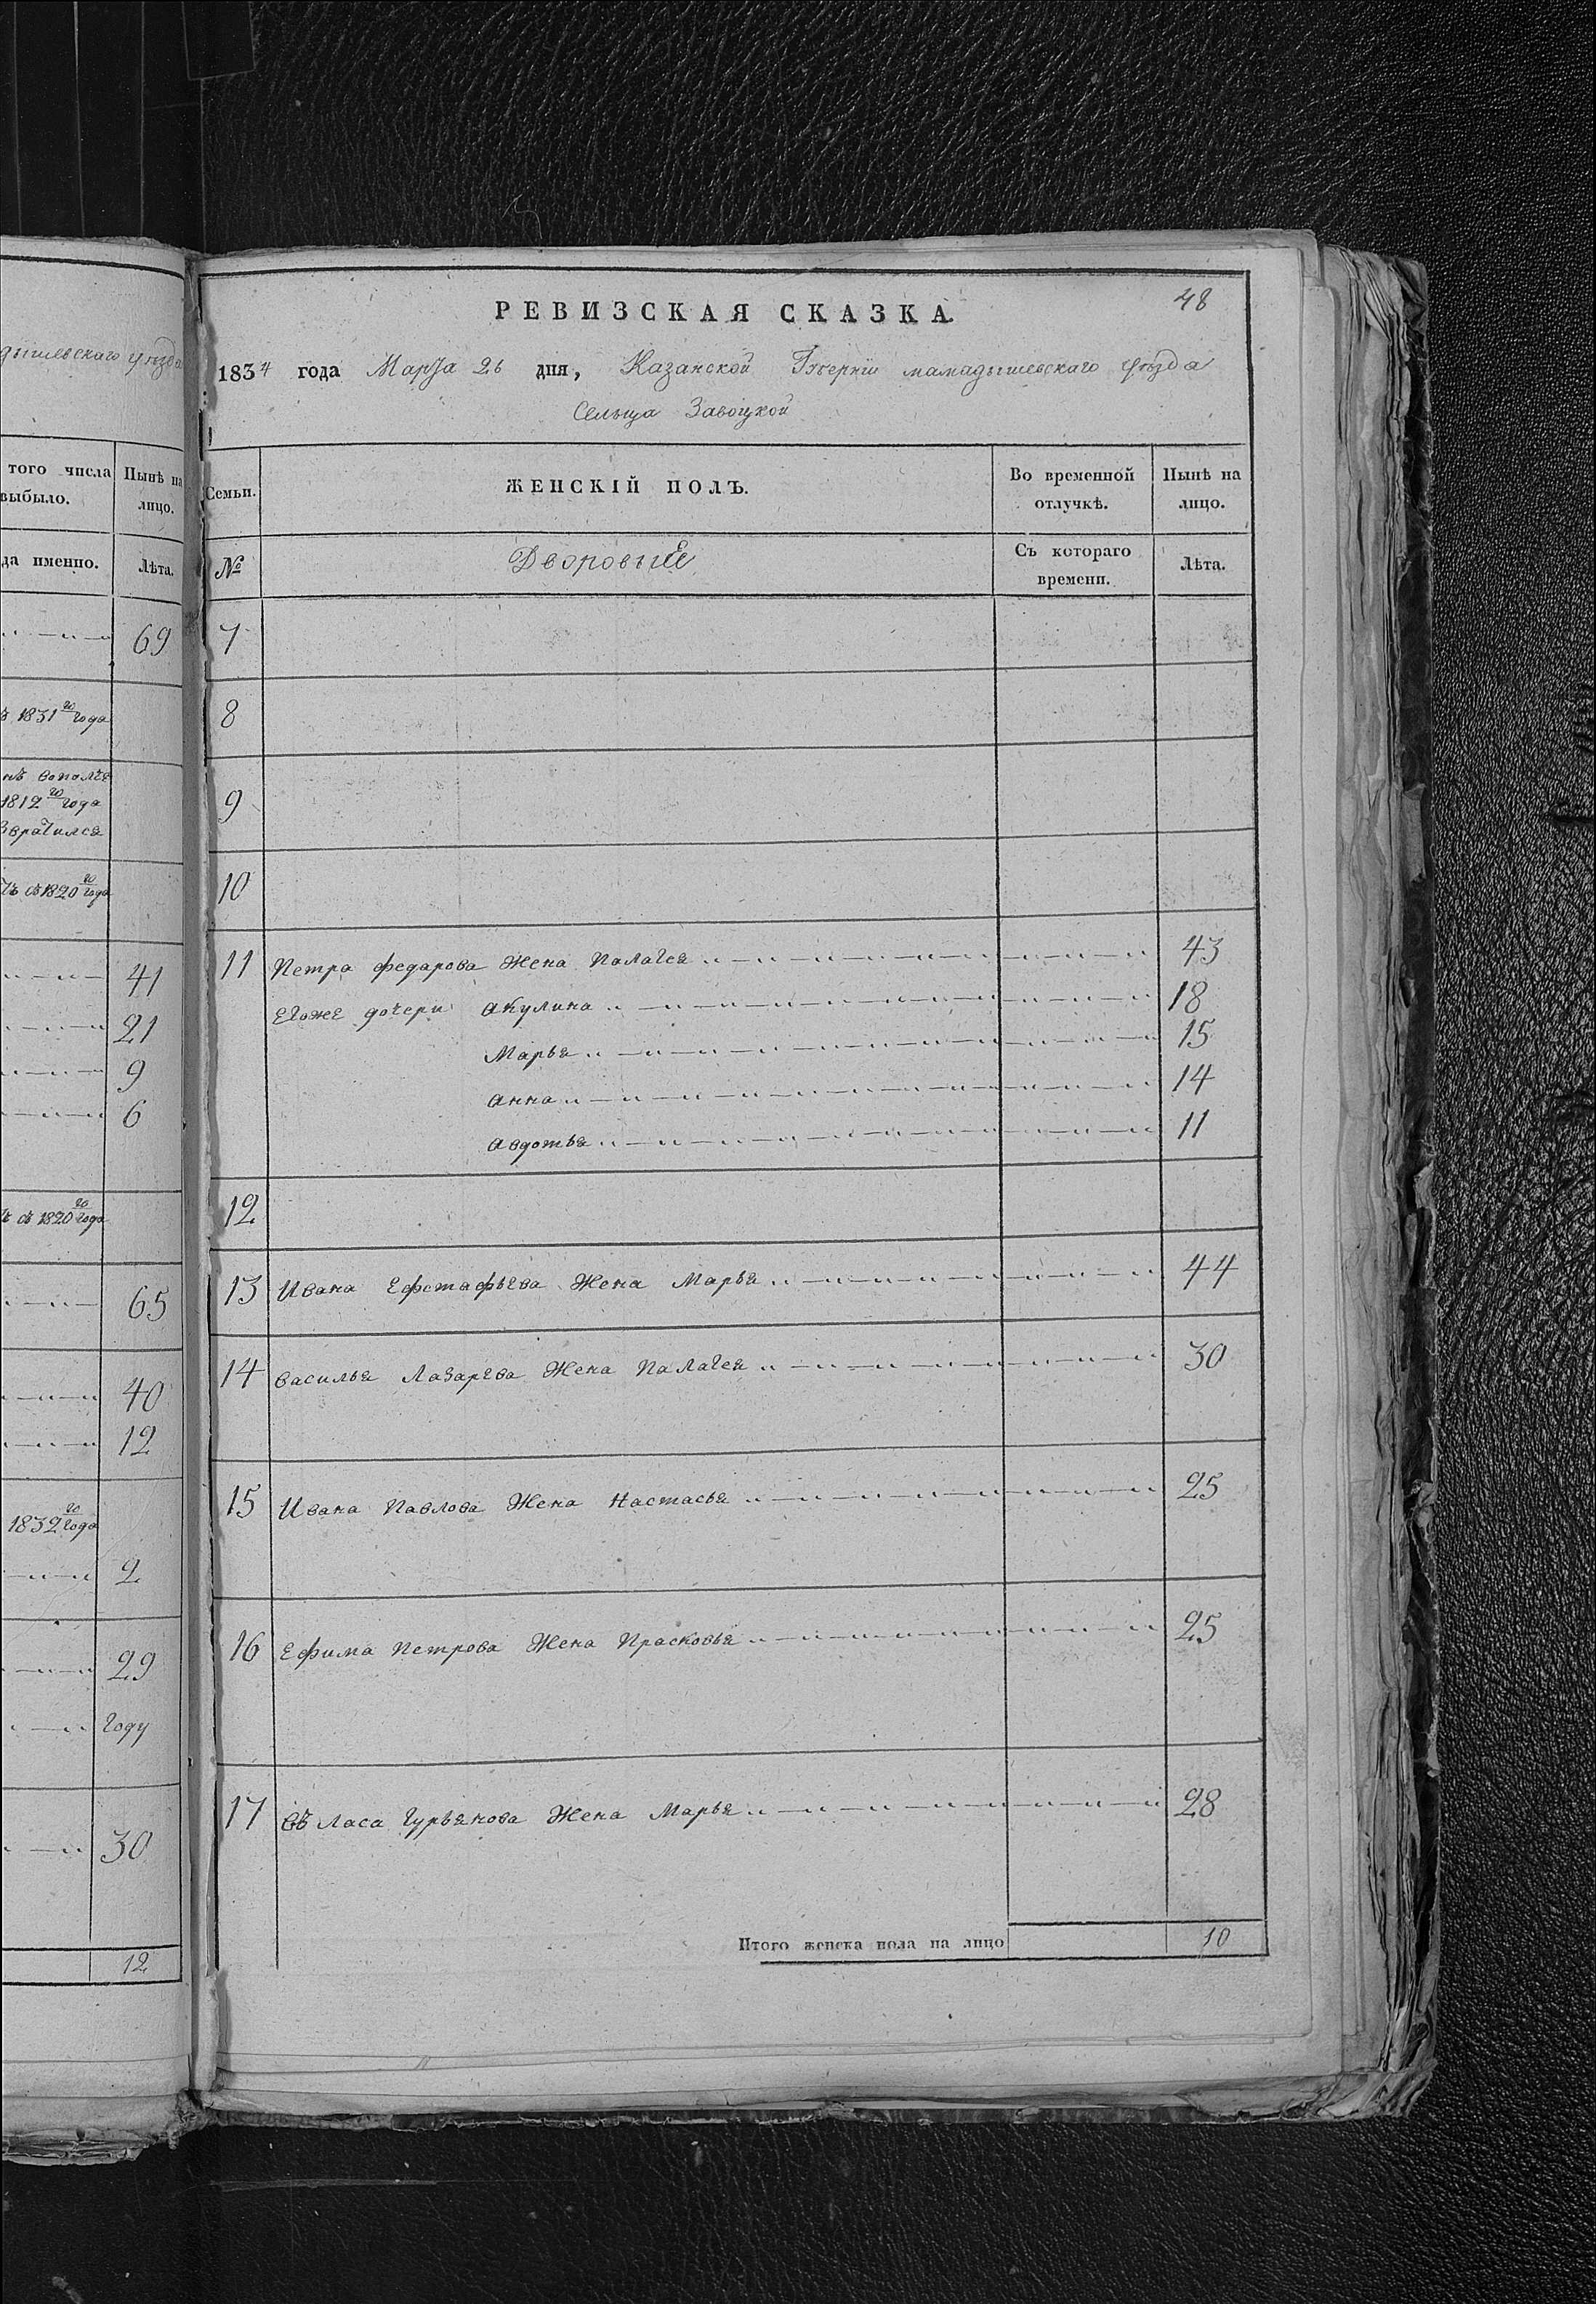 дышевскаго уѣзда
того числа выбыло.
Нынѣ на лицо.
да именно.
Лѣта.
69
1831го года
вополчѣ
1812го года
звратился
съ 1820го года
41
21
9
6
съ 1820го года
65
40
12
1832го года
2
29
году
30
12
48
РЕВИЗСКАЯ СКАЗКА
1834 года Марта 26 дня, Казанской Губерніи мамадышевскаго уѣзда
Сельца Завоцкой
Семьи.
ЖЕНСКІЙ ПОЛЪ.
Во временной отлучкѣ.
Нынѣ на лицо.
№
Дворовые
Съ котораго времени.
Лѣта.
7
8
9
10
11 Петра федарова Жена Палагея 43
Егоже дочери акулина 18
Марья 15
анна 14
авдотья 11
12
13 Ивана Ефстафьева Жена Марья 44
14 василья Лазарева Жена Палагея 30
15 Ивана Павлова Жена Настасья 25
16 Ефима Петрова Жена Прасковья 25
17 Ласа Гурьянова Жена Марья 28
Итого женска пола на лицо 10